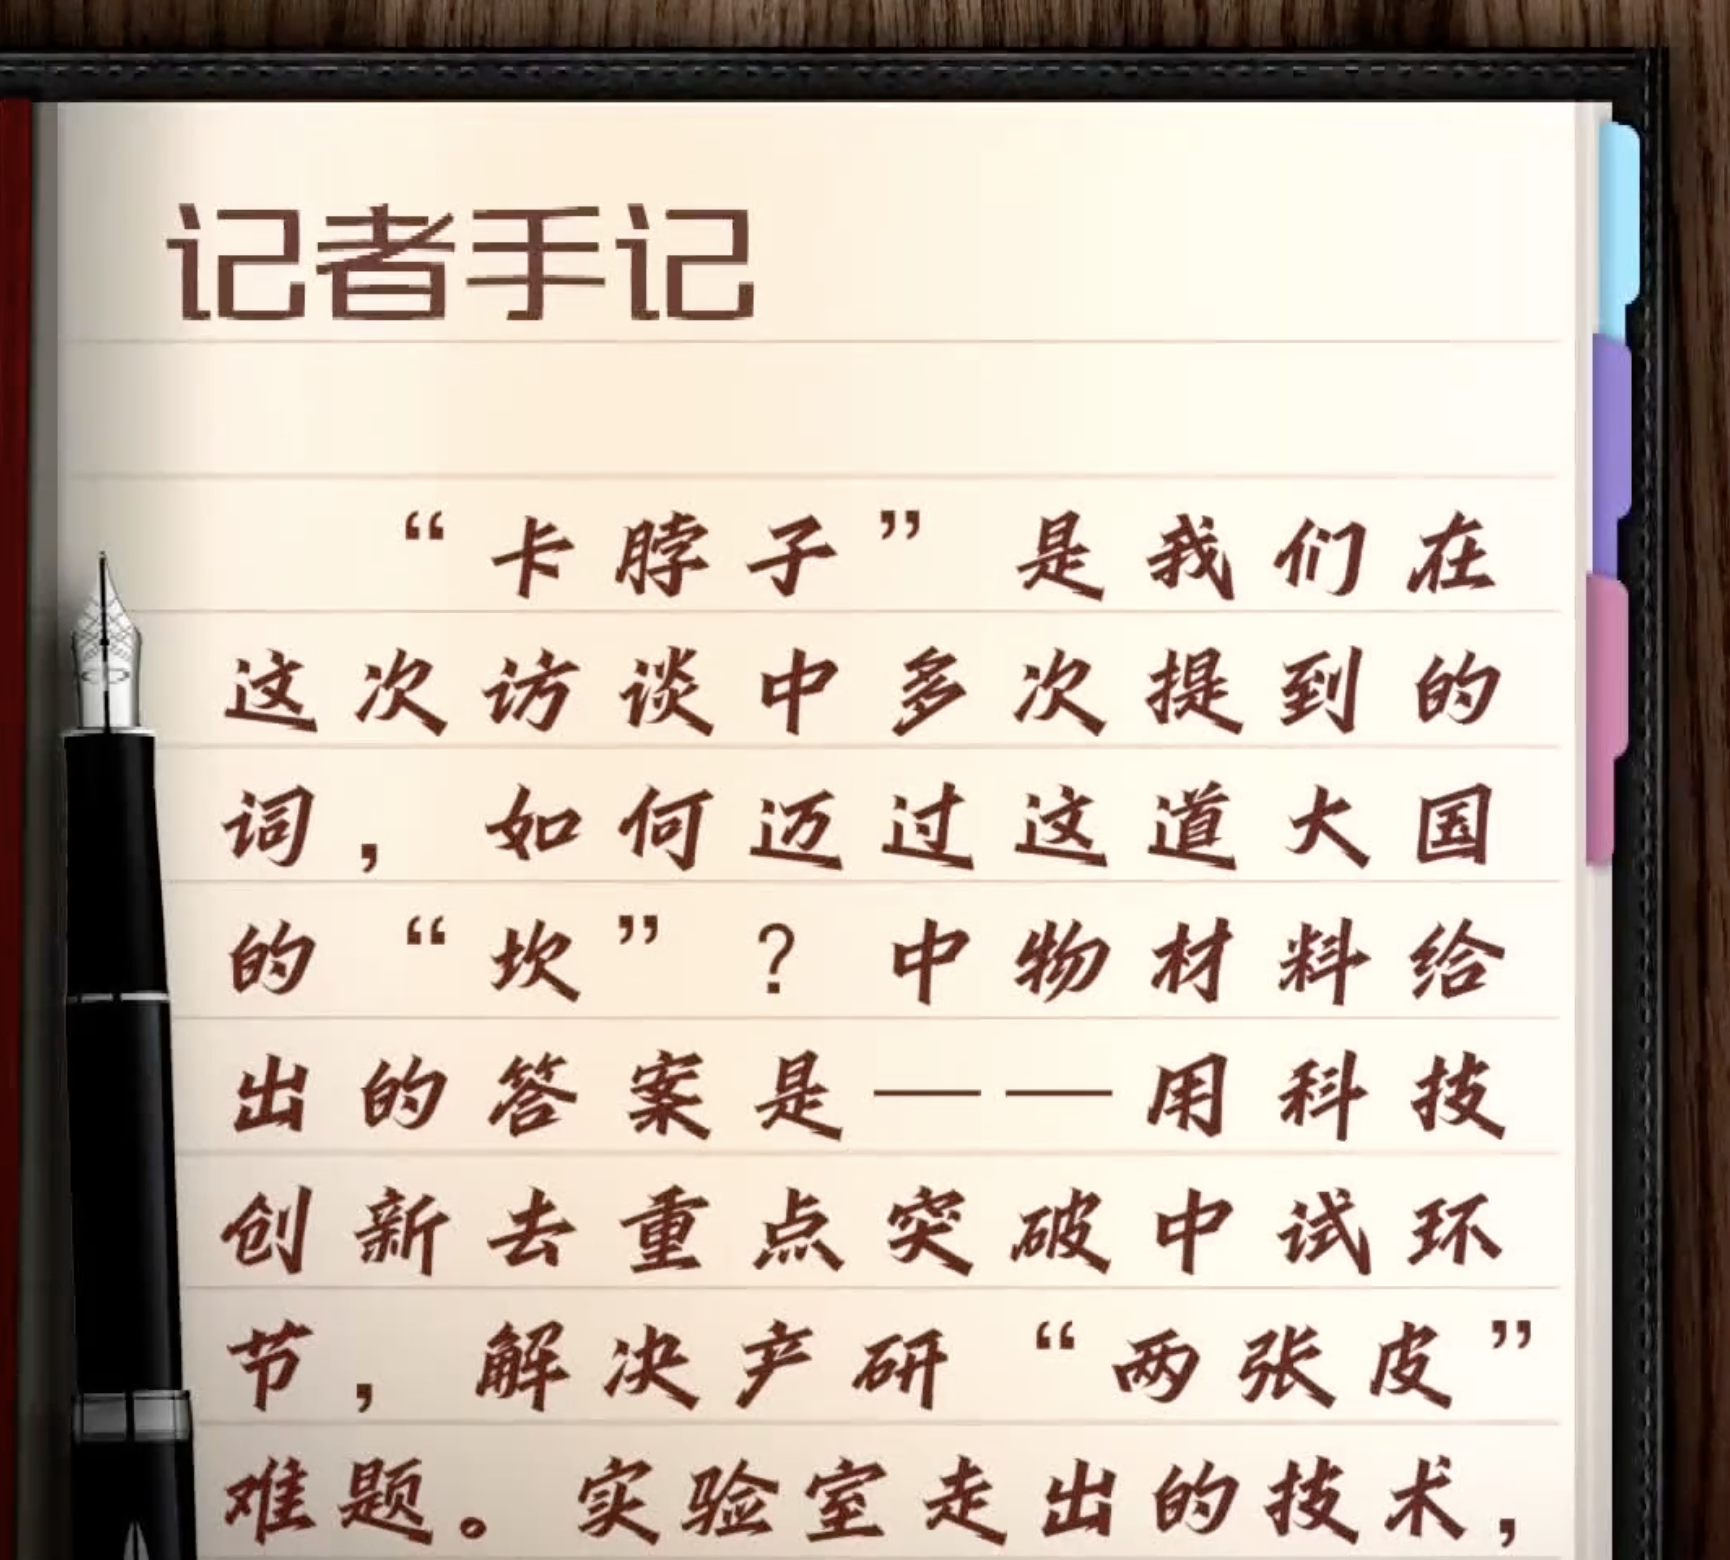 记者手记
“卡脖子”是我们在
这次访谈中多次提到的
词，如何迈过这道大国
的“坎”？中物材料给
出的答案是——用科技
创新去重点突破中试环
节，解决产研“两张皮”
难题。实验室走出的技术，